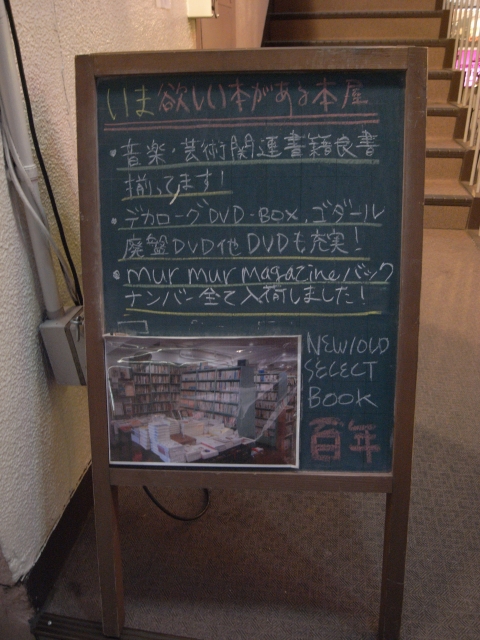 いま欲しい本がある本屋
・音楽・芸術関連書籍良書
揃ってます!
・デカローグDVD-BOX、ゴダール
廃盤DVD他DVDも充実!
・mur mur magazineバック
ナンバー全て入荷しました!
NEW/OLD
SELECT
BOOK
百年